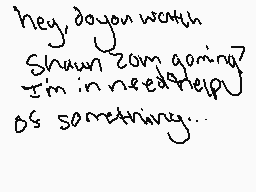 hey, do you watch
Shaun zom gaming?
I'm in need help
of something...